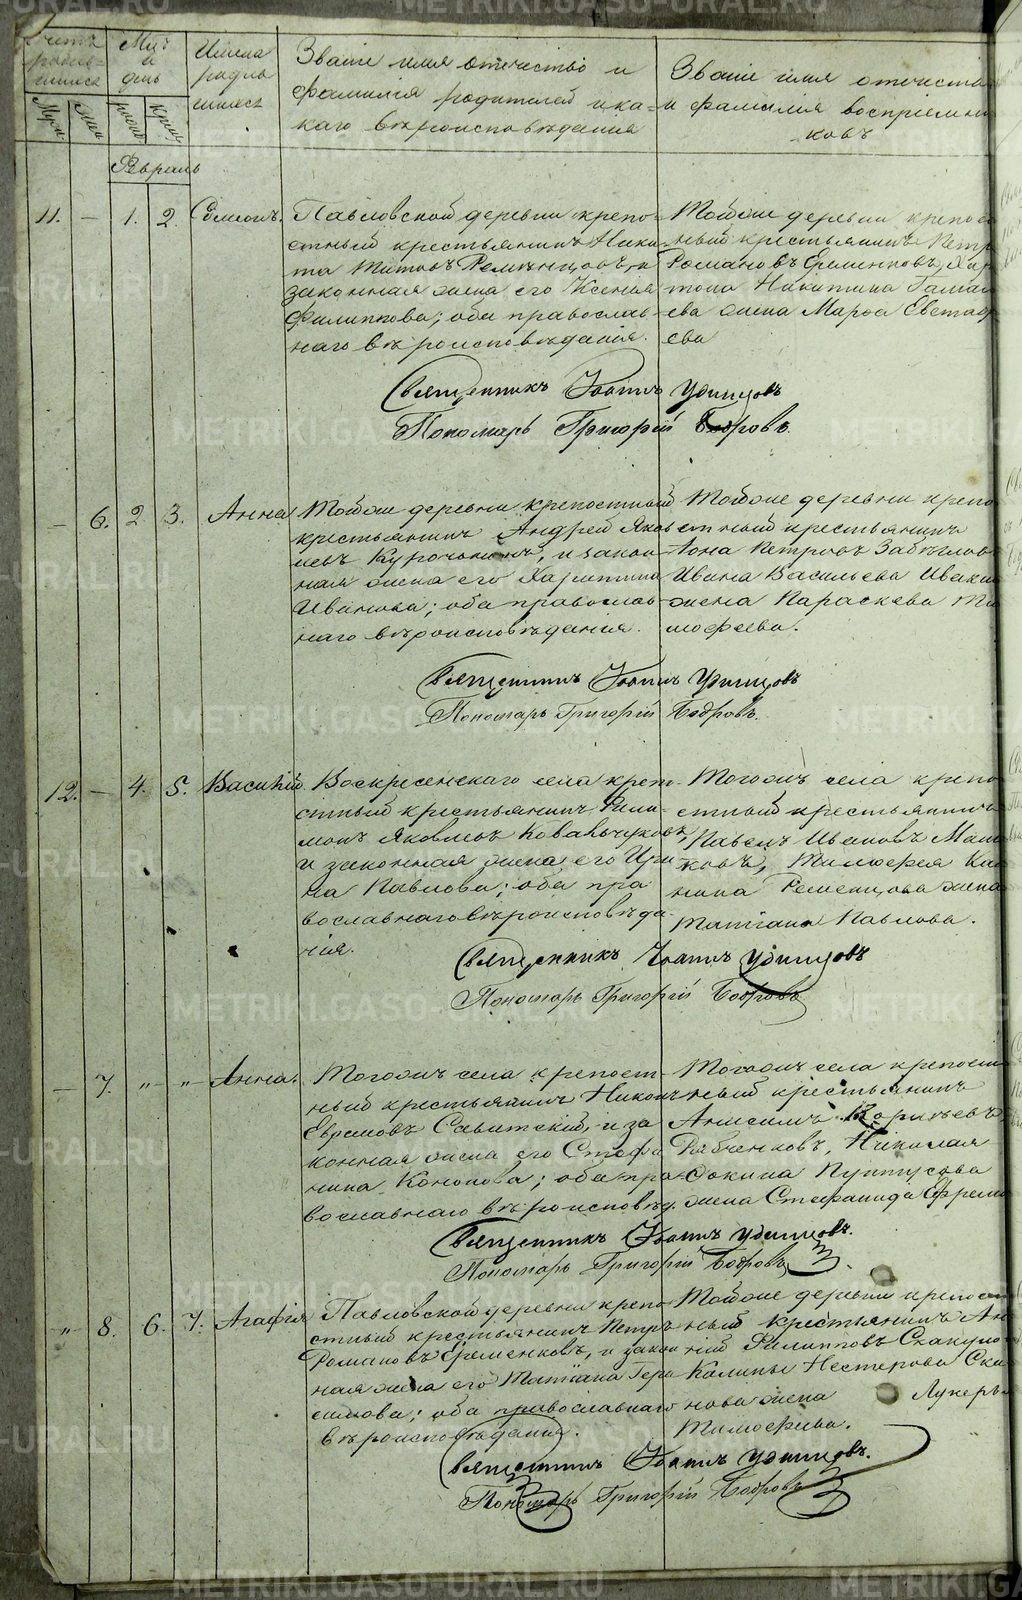 METRIKI.GASO-URAL.RU
Счетъ родив-шихся
Мѣс. и день
Имена родив-шихся
Званіе имя отечество и фамилія родителей и ка-
каго вѣроисповѣданія
Званіе имя отечество
и фамилія воспріемни-
ковъ
Муж.
Жен.
рожд.
крещ.
Февраль
11. — 1. 2. Симеонъ.
Павловской деревни крѣпо-
стный крестьянинъ Ники-
та Титовъ Ременцовъ, и
законная жена его Ксенія
Филиппова; оба православ-
наго вѣроисповѣданія.
Тойже деревни крѣпост
ный крестьянинъ Петръ
Романовъ Еременковъ, Хар
тона Никитина
жена Марѳа Евстаф
ева
Священникъ Іоаннъ Удинцовъ
Пономарь Григорій Бобровъ.
— 6. 2 3. Анна
Тойже деревни крѣпостный
крестьянинъ Андрей Яков
левъ Курочкинъ, и закон-
ная жена его Харитина
Иванова; оба православ-
наго вѣроисповѣданія.
Тойже деревни крѣпо-
стный крестьянинъ
Іона Петровъ Забѣглов
Ивана Васильева Иваки
жена Параскева Ти
моѳеева.
Священникъ Іоаннъ Удинцовъ
Пономарь Григорій Бобровъ.
12. — 4. 5. Василій.
Воскресенскаго села крѣп-
стный крестьянинъ Фили-
монъ Яковлевъ Ковальчуковъ,
и законная жена его Ири-
на Павлова; оба пра-
вославнаго вѣроисповѣда-
нія.
Тогожъ села крѣпо-
стный крестьянинъ
Павелъ Ивановъ Маш
ковъ, Тимоѳея Ка
нина Ременцова жена
Татіана Павлова.
Священникъ Іоаннъ Удинцовъ
Пономарь Григорій Бобровъ
— 7. „ — „ — Анна.
Тогожъ села крѣпост-
ный крестьянинъ Никон
Ефремовъ Савитскій, и за
конная жена его Стефа
нида Кононова; оба пра-
вославнаго вѣроисповѣд.
Тогожъ села крѣпост
ный крестьянинъ
Анисимъ
Рябченковъ, Николая
жена Стефанида Ефремо
Священникъ Іоаннъ Удинцовъ.
Пономарь Григорій Бобровъ
„ 8. 6. 7. Агафія
Павловской деревни крѣпо-
стный крестьянинъ Петръ
Романовъ Еременковъ, и закон
ная жена его Татіана Гера
симова; оба православнаго
вѣроисповѣданія.
Тойже деревни крѣпост
ный крестьянинъ Ан
ній Филипповъ Скакуно
Калины Нестерова Ска
нова жена Лукерья
Тимоѳеева.
Священникъ Іоаннъ Удинцовъ.
Пономарь Григорій Бобровъ
METRIKI.GASO-URAL.RU